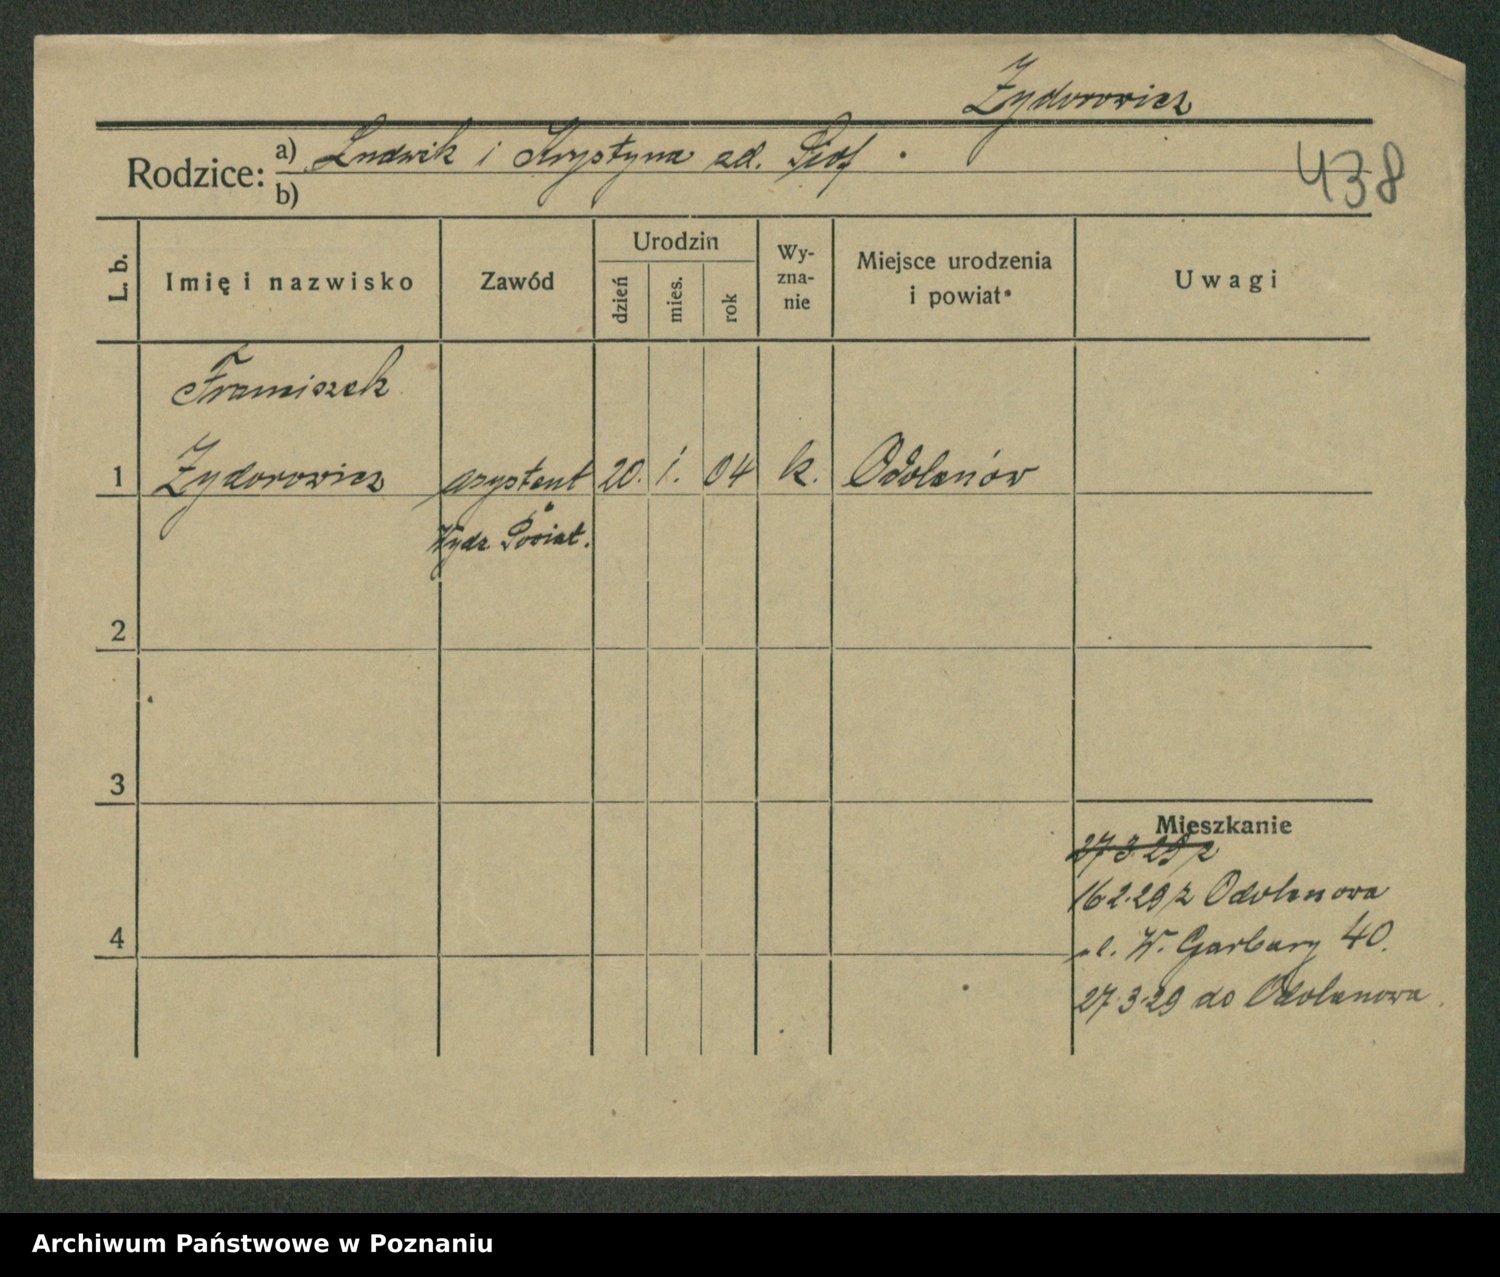 Zydorowicz
438
Rodzice: a) Ludwik i Krystyna zd.
b)
L. b.
Imię i nazwisko
Zawód
Urodzin
dzień
mies.
rok
Wy-
zna-
nie
Miejsce urodzenia
i powiat
Uwagi
Franciszek
1 Zydorowicz asystent 20. 1. 04 k. Odolanów
Wydz. Powiat.
2
3
Mieszkanie
27.3.29 z
16.2.29 z Odolanowa
4
ul. W. Garbary 40.
27.3.29 do Odolanowa.
Archiwum Państwowe w Poznaniu